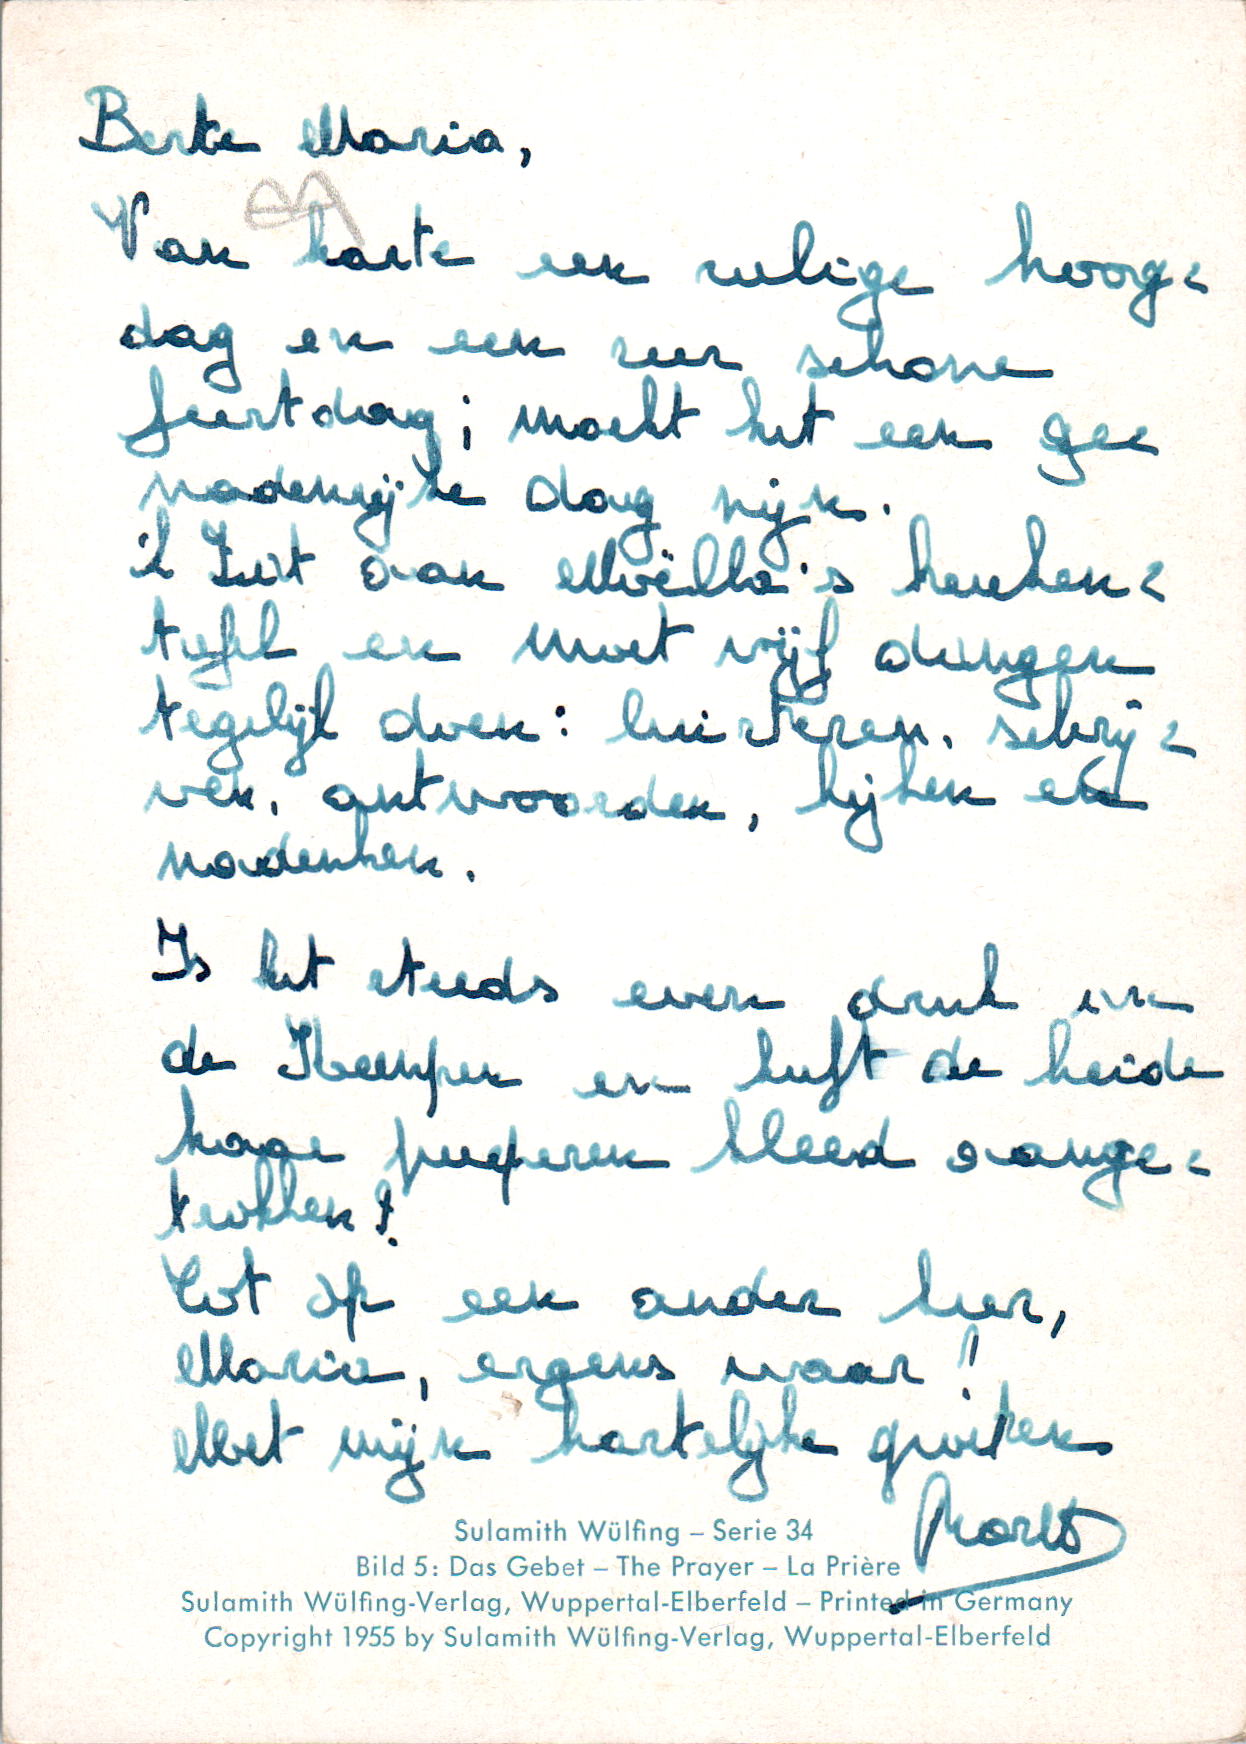 Beste Maria,
Van harte een zalige hoog=
dag en een zeer schone
feestdag; mocht het een ge=
nadenrijke dag zijn.
'k Zit aan Moëlla's keuken=
tafel en moet vijf dingen
tegelijk doen: luisteren, schrij=
ven, antwoorden, kijken en
nadenken.
Is het steeds even druk in
de Kempen en heeft de heide
haar purperen kleed aange=
trokken?
Tot op een ander keer,
Maria, ergens waar!
Met mijn hartelijke groeten
Sulamith Wülfing – Serie 34
Bild 5: Das Gebet – The Prayer – La Prière
Sulamith Wülfing-Verlag, Wuppertal-Elberfeld – Printed in Germany
Copyright 1955 by Sulamith Wülfing-Verlag, Wuppertal-Elberfeld